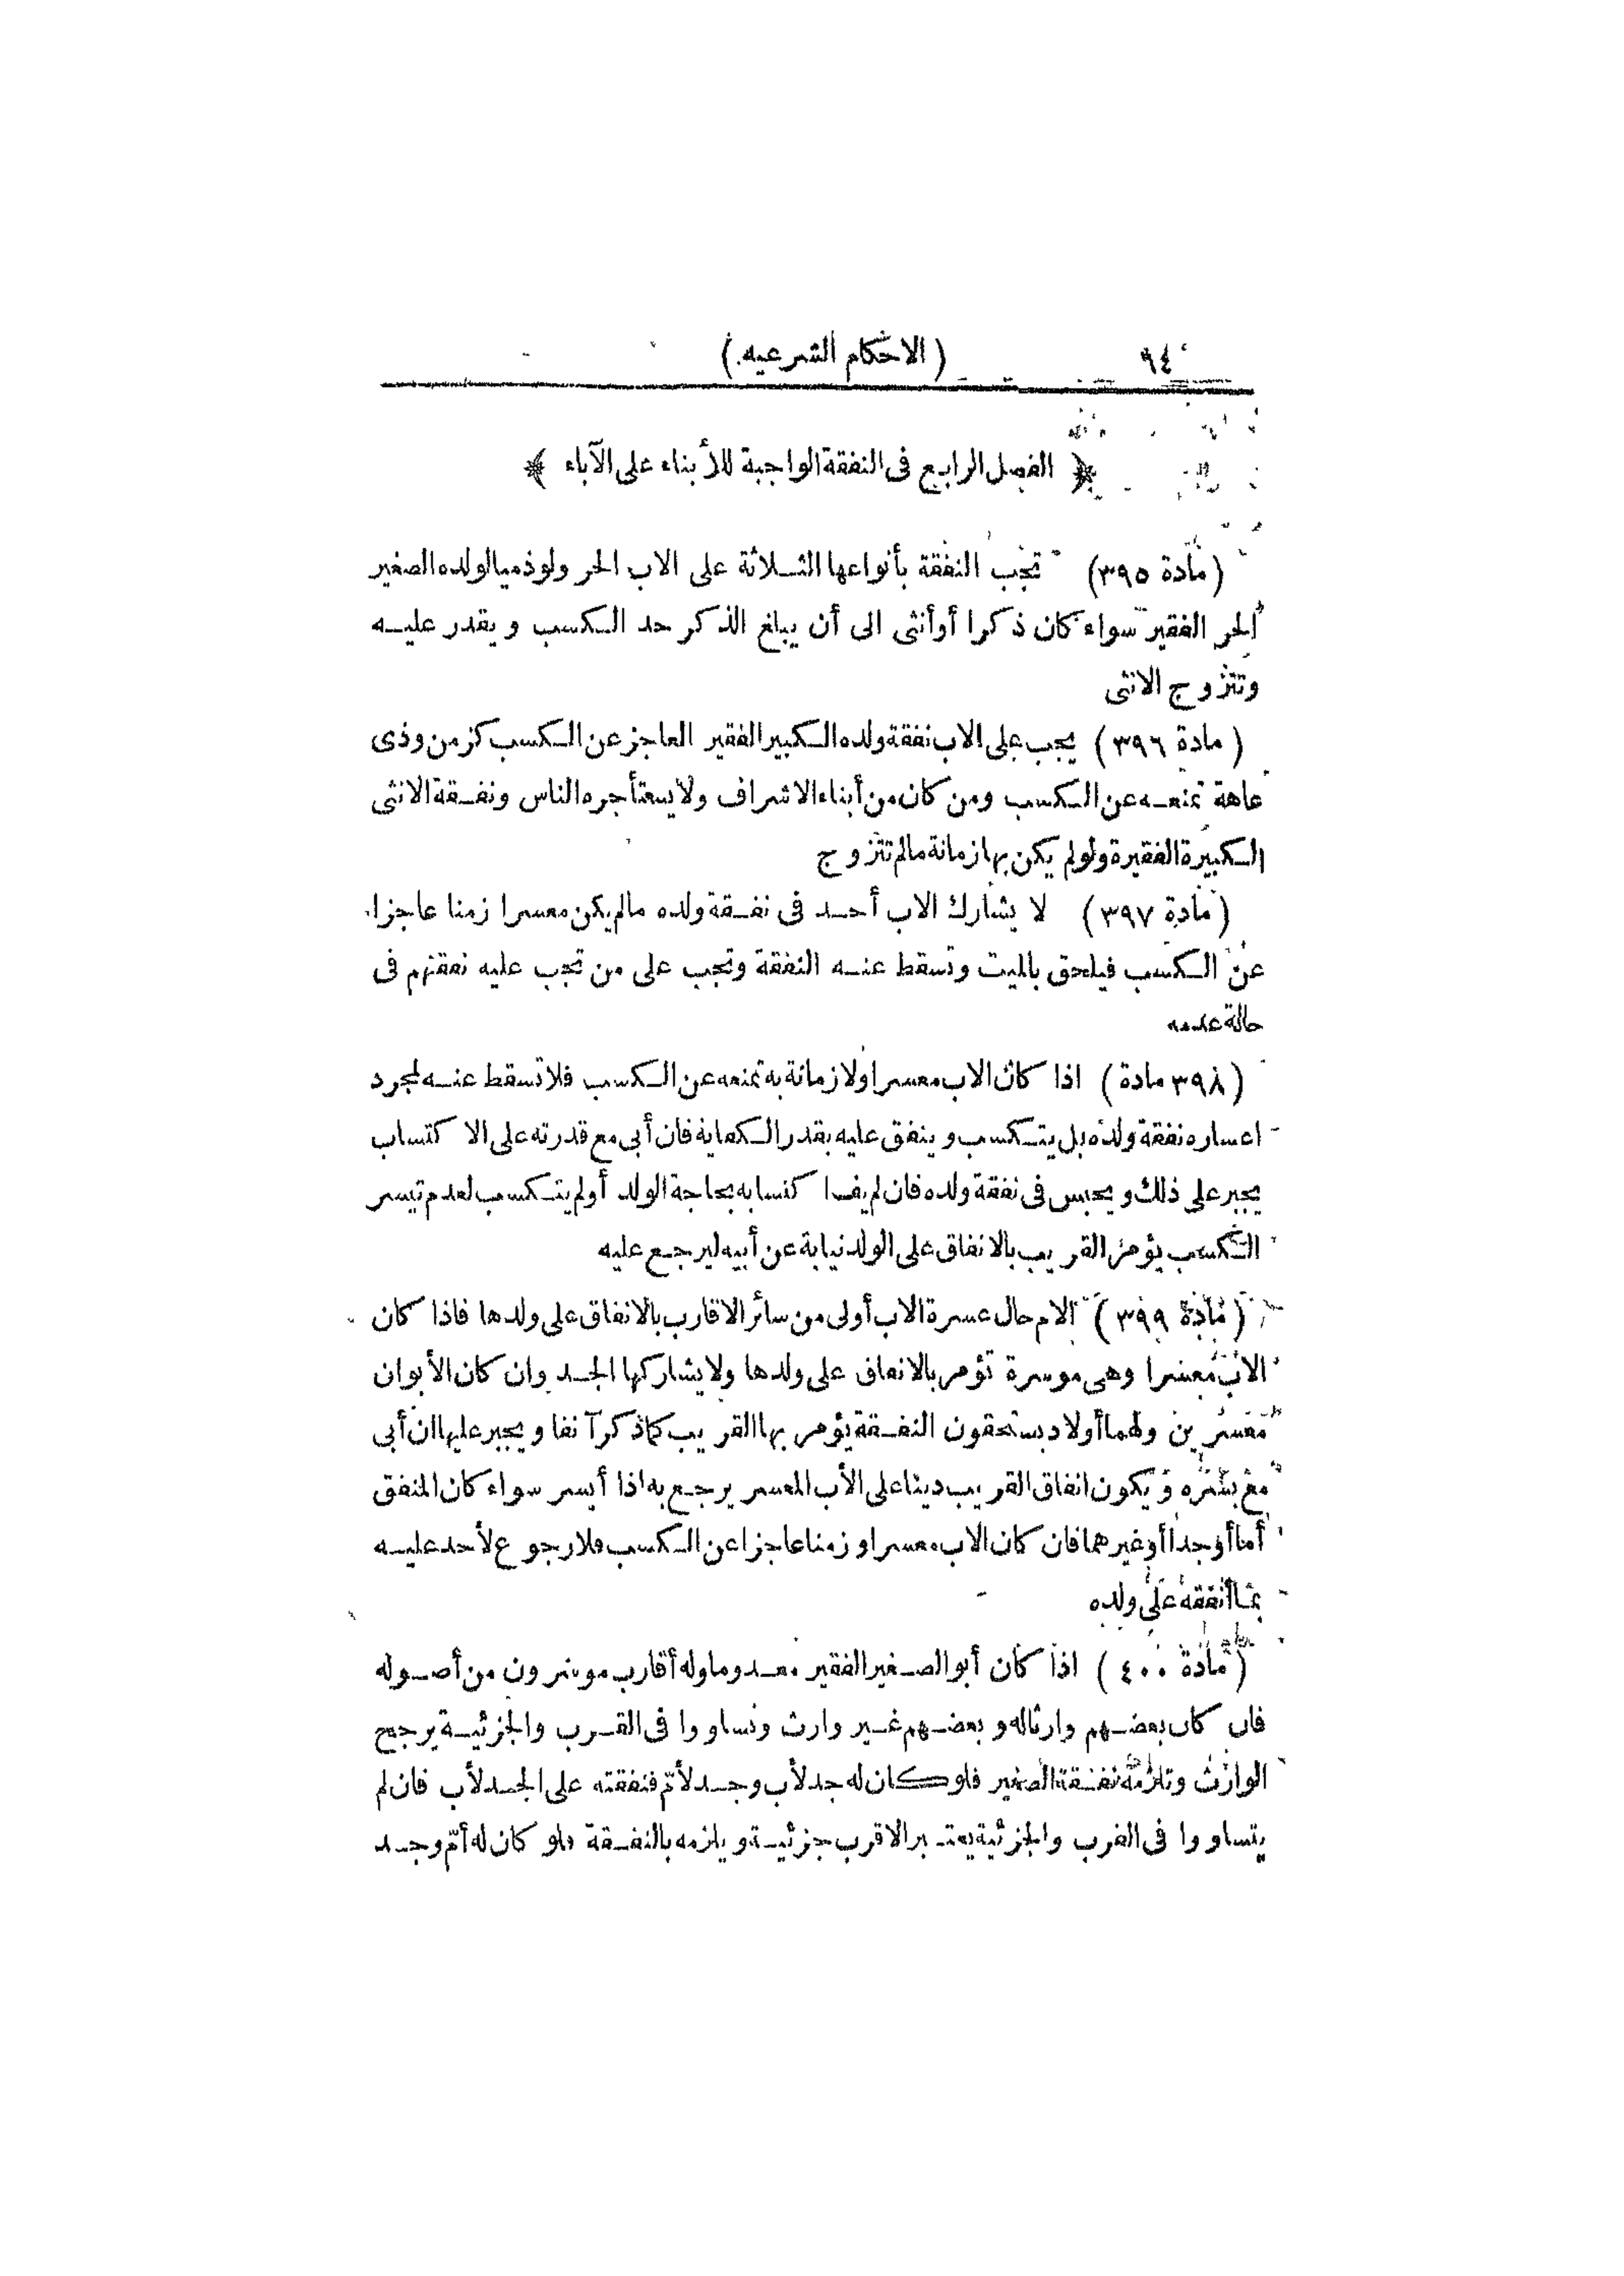 ٩٤ (الاحكام الشرعيه)
﴿ الفصل الرابع فى النفقة الواجبة للأبناء على الآباء ﴾
(مادة ٣٩٥) تجب النفقة بأنواعها الثلاثة على الاب الحر ولو ذميا لولده الصغير
الحر الفقير سواء كان ذكرا أو أنثى الى أن يبلغ الذكر حد الكسب ويقدر عليه
وتتزوج الانثى
(مادة ٣٩٦) يجب على الاب نفقة ولده الكبير الفقير العاجز عن الكسب كزمن وذى
عاهة تمنعه عن الكسب ومن كان من أبناء الاشراف ولا يستأجره الناس ونفقة الانثى
الكبيرة الفقيرة ولو لم يكن بها زمانة مالم تتزوج
(مادة ٣٩٧) لا يشارك الاب أحد فى نفقة ولده مالم يكن معسرا زمنا عاجزا
عن الكسب فيلحق بالميت وتسقط عنه النفقة وتجب على من تجب عليه نفقتهم فى
حالة عدمه
(٣٩٨ مادة) اذا كان الاب معسرا ولا زمانة به تمنعه عن الكسب فلا تسقط عنه لمجرد
اعساره نفقة ولده بل يتكسب وينفق عليه بقدر الكفاية فان أبى مع قدرته على الاكتساب
يجبر على ذلك ويحبس فى نفقة ولده فان لم يف اكتسابه بحاجة الولد أو لم يتكسب لعدم تيسر
الكسب يؤمر القريب بالانفاق على الولد نيابة عن أبيه ليرجع عليه
(مادة ٣٩٩) الام حال عسرة الاب أولى من سائر الاقارب بالانفاق على ولدها فاذا كان
الاب معسرا وهى موسرة تؤمر بالانفاق على ولدها ولا يشاركها الجد وان كان الأبوان
معسرين ولهما أولاد يستحقون النفقة يؤمر بها القريب كما ذكر آنفا ويجبر عليها ان أبى
مع يسره ويكون انفاق القريب دينا على الأب المعسر يرجع به اذا أيسر سواء كان المنفق
أما أو جدا أو غيرهما فان كان الاب معسرا وزمنا عاجزا عن الكسب فلا رجوع لأحد عليه
بما أنفقه على ولده
(مادة ٤٠٠) اذا كان أبو الصغير الفقير معدوما وله أقارب موسرون من أصوله
فان كان بعضهم وارثا له وبعضهم غير وارث وتساووا فى القرب والجزئية يرجح
الوارث وتلزمه نفقة الصغير فلو كان له جد لأب وجد لأم فنفقته على الجد لأب فان لم
يتساووا فى القرب والجزئية يعتبر الاقرب جزئية ويلزمه بالنفقة فلو كان له أم وجد